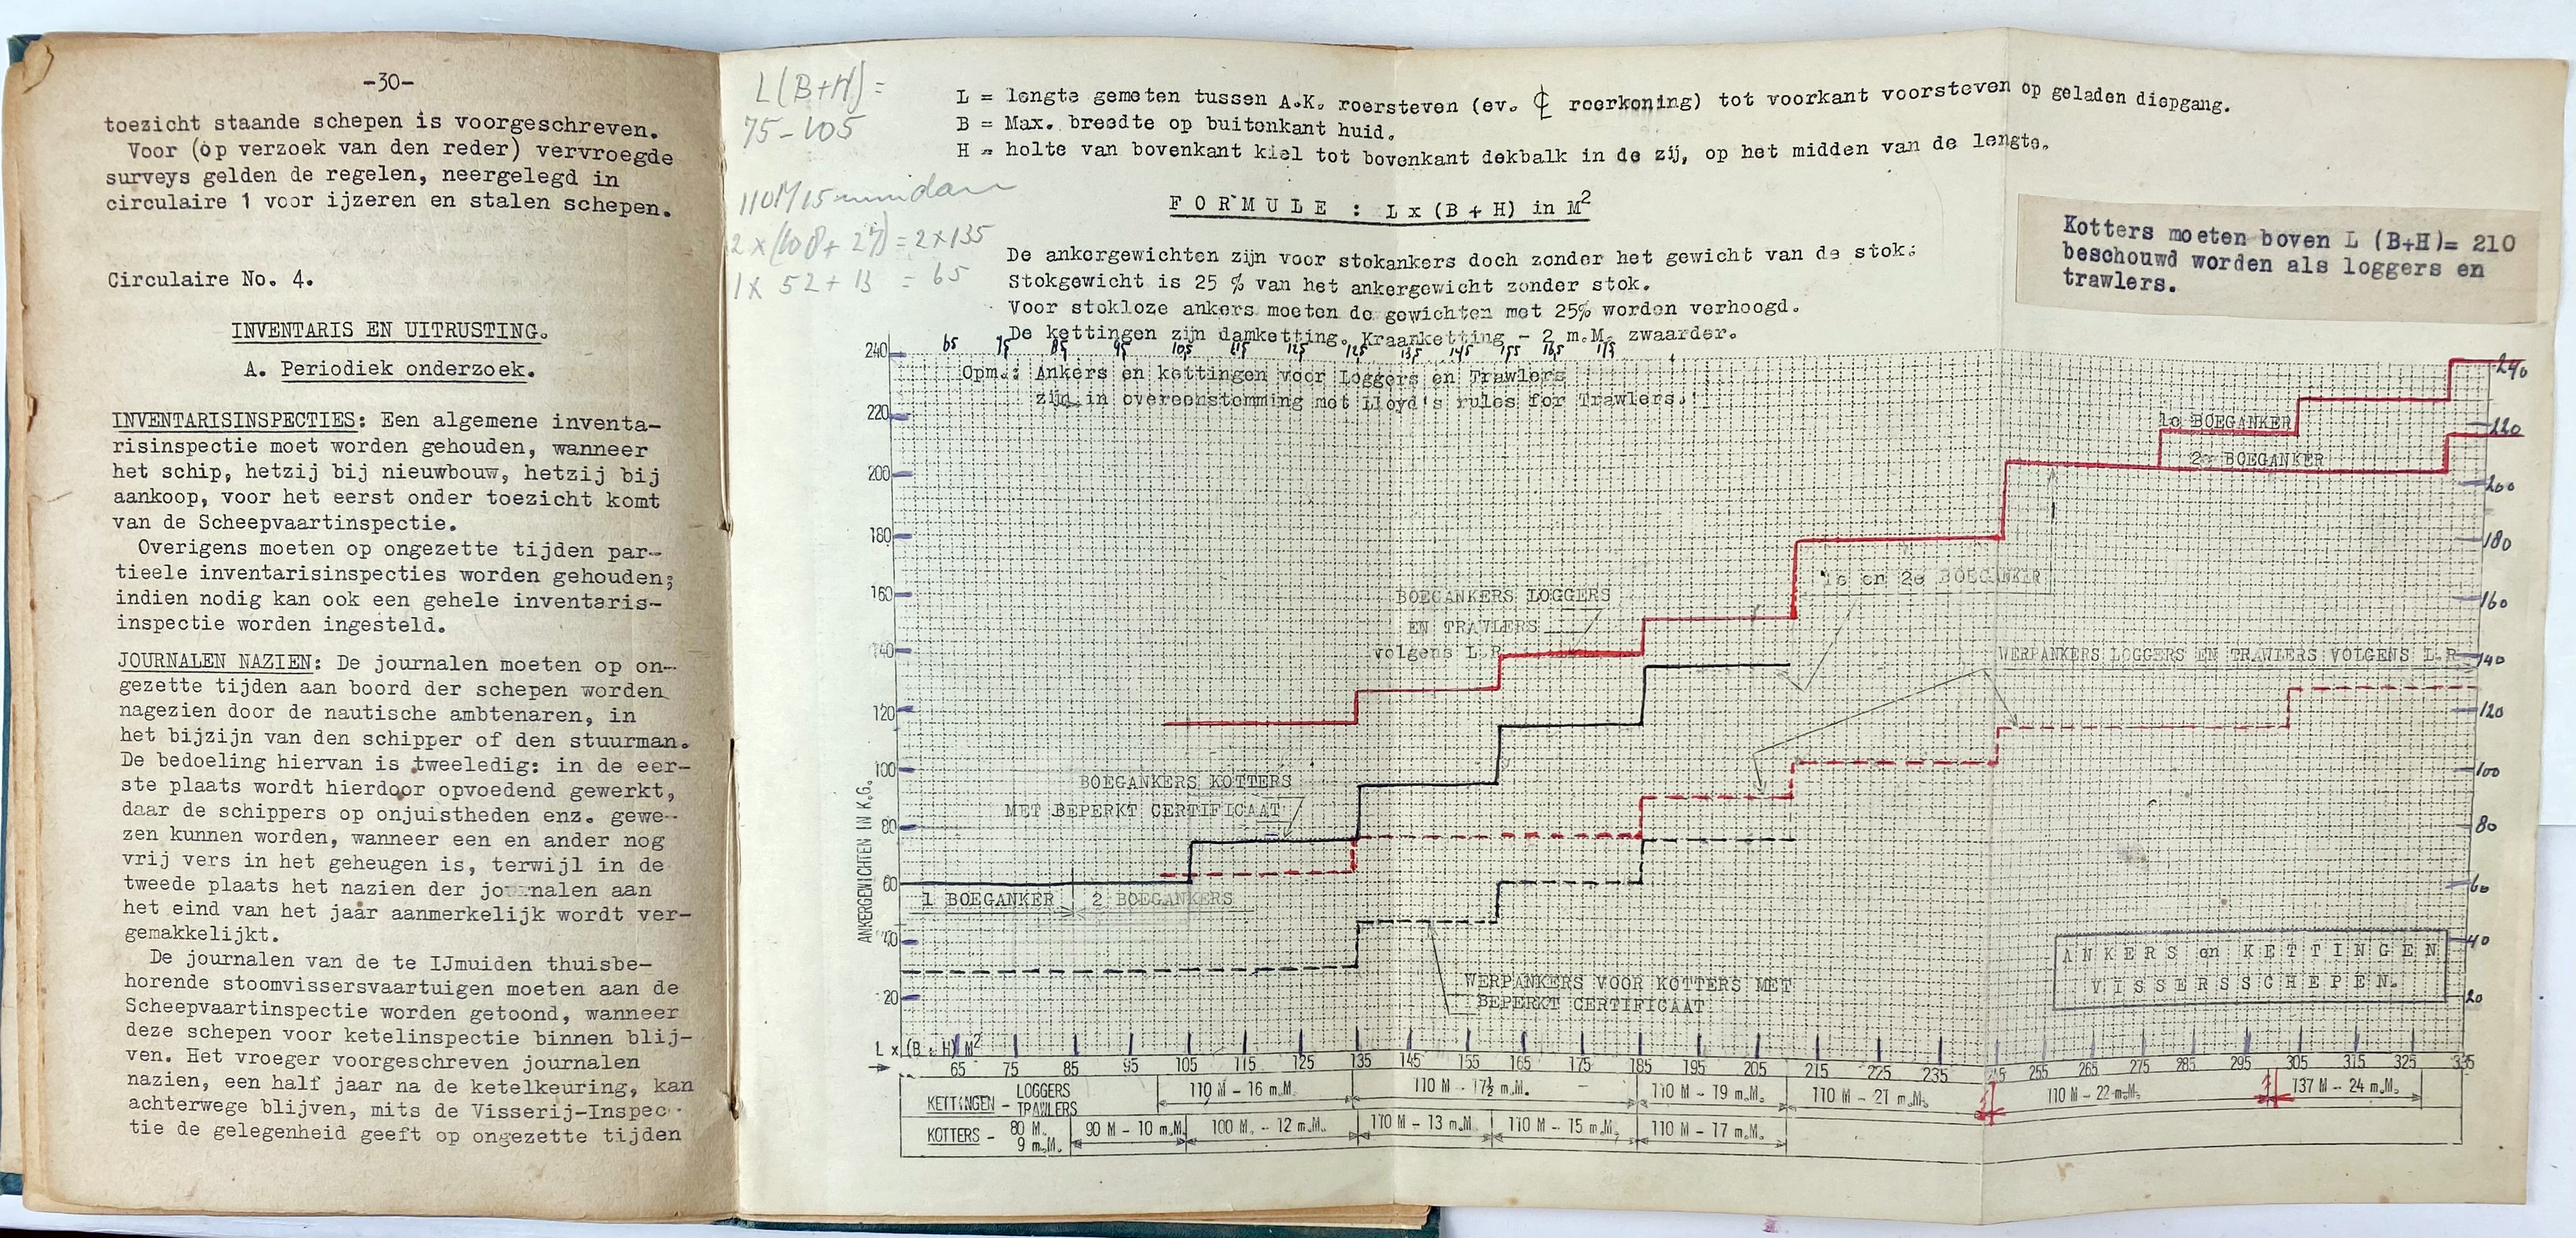 -30-
toezicht staande schepen is voorgeschreven.
Voor (op verzoek van den reder) vervroegde
surveys gelden de regelen, neergelegd in
circulaire 1 voor ijzeren en stalen schepen.
Circulaire No. 4.
INVENTARIS EN UITRUSTING.
A. Periodiek onderzoek.
INVENTARISINSPECTIES: Een algemene inventa-
risinspectie moet worden gehouden, wanneer
het schip, hetzij bij nieuwbouw, hetzij bij
aankoop, voor het eerst onder toezicht komt
van de Scheepvaartinspectie.
Overigens moeten op ongezette tijden par-
tieele inventarisinspecties worden gehouden;
indien nodig kan ook een gehele inventaris-
inspectie worden ingesteld.
JOURNALEN NAZIEN: De journalen moeten op on-
gezette tijden aan boord der schepen worden
nagezien door de nautische ambtenaren, in
het bijzijn van den schipper of den stuurman.
De bedoeling hiervan is tweeledig: in de eer-
ste plaats wordt hierdoor opvoedend gewerkt,
daar de schippers op onjuistheden enz. gewe-
zen kunnen worden, wanneer een en ander nog
vrij vers in het geheugen is, terwijl in de
tweede plaats het nazien der journalen aan
het eind van het jaar aanmerkelijk wordt ver-
gemakkelijkt.
De journalen van de te IJmuiden thuisbe-
horende stoomvissersvaartuigen moeten aan de
Scheepvaartinspectie worden getoond, wanneer
deze schepen voor ketelinspectie binnen blij-
ven. Het vroeger voorgeschreven journalen
nazien, een half jaar na de ketelkeuring, kan
achterwege blijven, mits de Visserij-Inspec-
tie de gelegenheid geeft op ongezette tijden
L(B+H) =
75-105
110M 15 mm dam
2 x (108 + 27) = 2 x 135
1 x 52 + 13 = 65
L = lengte gemeten tussen A.K. roersteven (ev. ℄ roerkoning) tot voorkant voorsteven op geladen diepgang.
B = Max. breedte op buitenkant huid.
H = holte van bovenkant kiel tot bovenkant dekbalk in de zij, op het midden van de lengte.
FORMULE : L x (B + H) in M²
Kotters moeten boven L (B+H)= 210
beschouwd worden als loggers en
trawlers.
De ankergewichten zijn voor stokankers doch zonder het gewicht van de stok.
Stokgewicht is 25 % van het ankergewicht zonder stok.
Voor stokloze ankers moeten de gewichten met 25% worden verhoogd.
De kettingen zijn damketting. Kraanketting - 2 m.M. zwaarder.
65 75 85 95 105 115 125 125 135 145 155 165 175
Opm.: Ankers en kettingen voor Loggers en Trawlers
zijn in overeenstemming met Lloyd's rules for Trawlers.
240
220
200
180
160
140
120
100
80
60
40
20
ANKERGEWICHTEN IN K.G.
1e BOEGANKER
2e BOEGANKER
1e en 2e BOEGANKER
BOEGANKERS LOGGERS
EN TRAWLERS
volgens L.R.
WERPANKERS LOGGERS EN TRAWLERS VOLGENS L.R.
BOEGANKERS KOTTERS
MET BEPERKT CERTIFICAAT
1 BOEGANKER
2 BOEGANKERS
WERPANKERS VOOR KOTTERS MET
BEPERKT CERTIFICAAT
ANKERS en KETTINGEN
VISSERSSCHEPEN.
240
220
200
180
160
140
120
100
80
60
40
20
L x (B + H) M²
65 75 85 95 105 115 125 135 145 155 165 175 185 195 205 215 225 235 245 255 265 275 285 295 305 315 325 335
KETTINGEN - LOGGERS TRAWLERS
110 M - 16 m.M.
110 M - 17½ m.M.
110 M - 19 m.M.
110 M - 21 m.M.
110 M - 22 m.M.
137 M - 24 m.M.
KOTTERS - 80 M. 9 m.M.
90 M - 10 m.M.
100 M. - 12 m.M.
110 M - 13 m.M
110 M - 15 m.M.
110 M - 17 m.M.